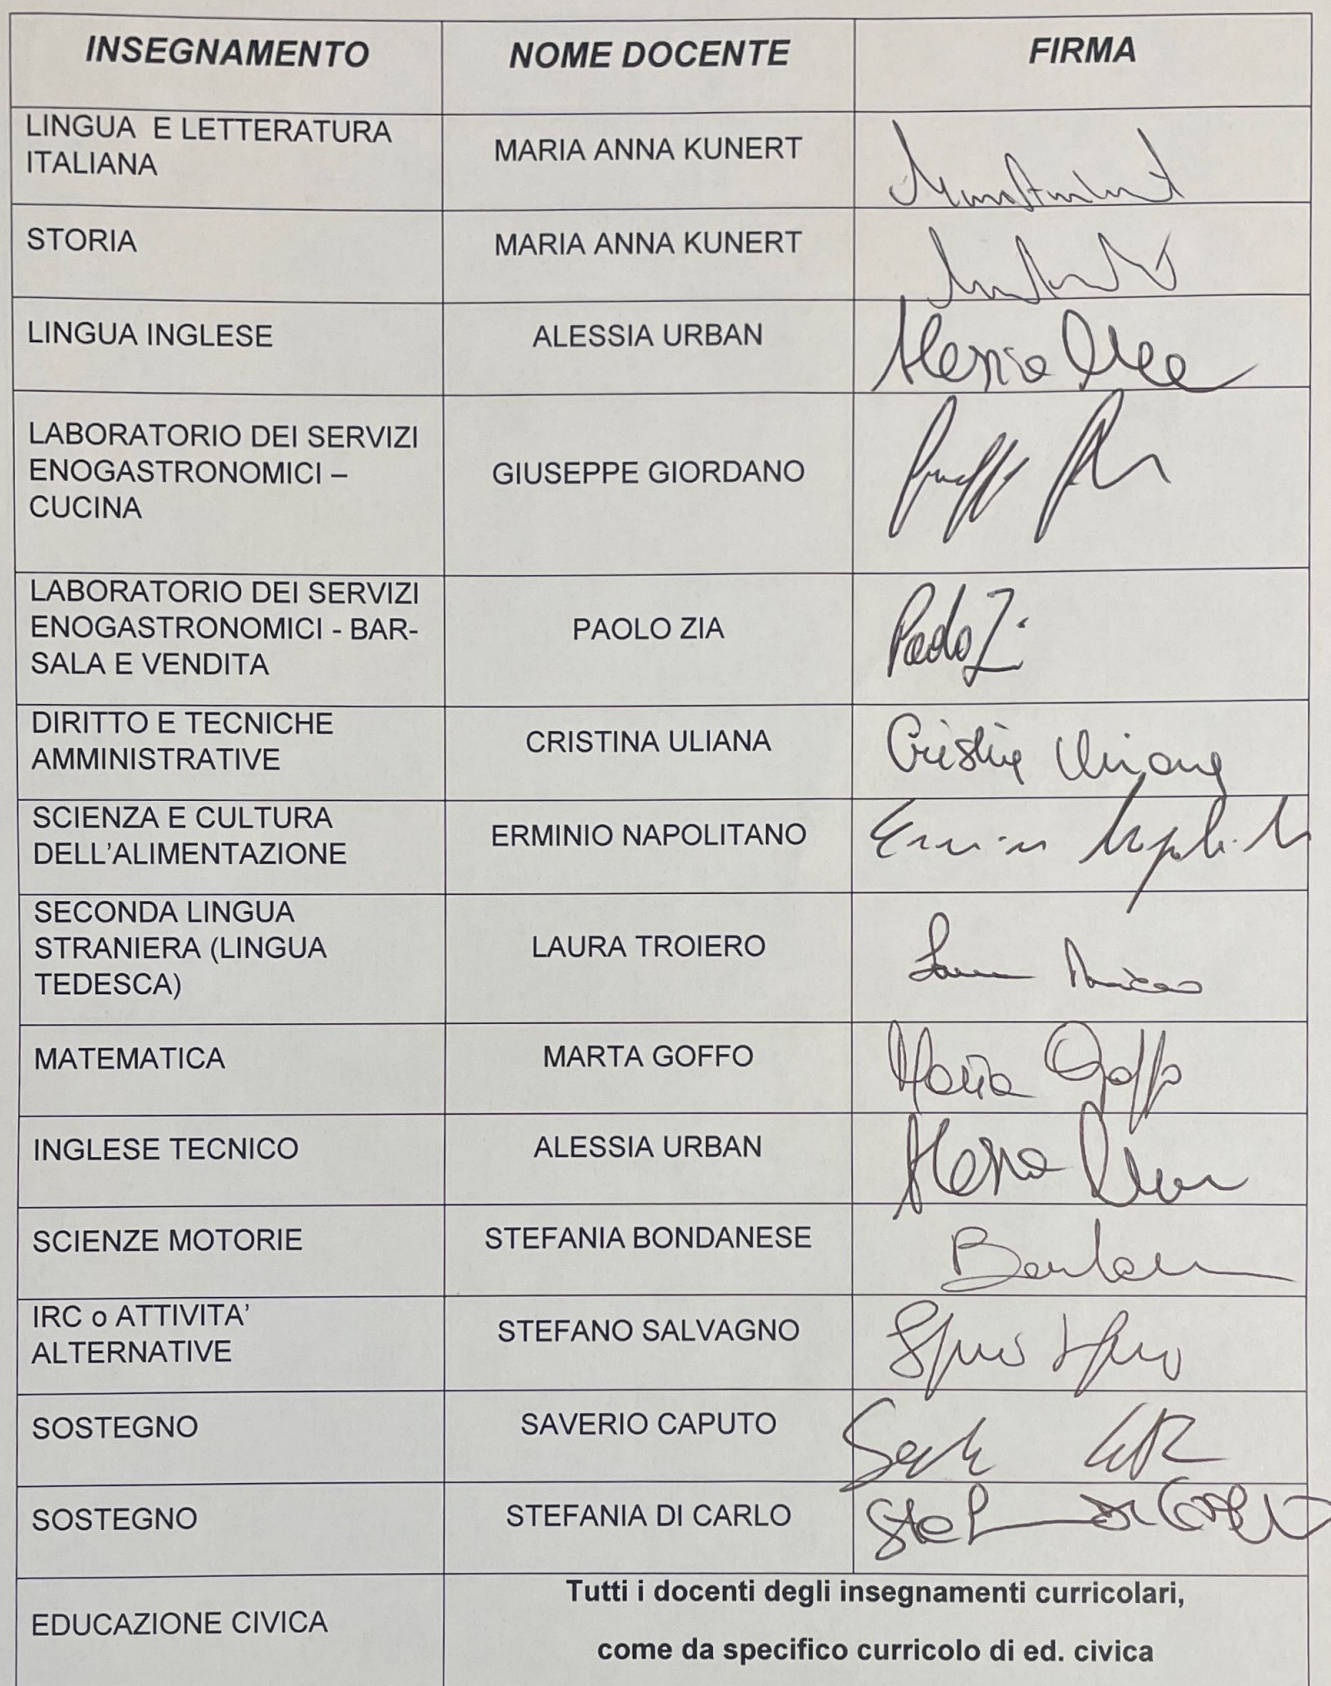 INSEGNAMENTO NOME DOCENTE FIRMA
LINGUA E LETTERATURA
ITALIANA
MARIA ANNA KUNERT
STORIA
MARIA ANNA KUNERT
LINGUA INGLESE
ALESSIA URBAN
Alessia
LABORATORIO DEI SERVIZI
ENOGASTRONOMICI –
CUCINA
GIUSEPPE GIORDANO
LABORATORIO DEI SERVIZI
ENOGASTRONOMICI - BAR-
SALA E VENDITA
PAOLO ZIA
Paolo Zi
DIRITTO E TECNICHE
AMMINISTRATIVE
CRISTINA ULIANA
Cristina Uliana
SCIENZA E CULTURA
DELL'ALIMENTAZIONE
ERMINIO NAPOLITANO
SECONDA LINGUA
STRANIERA (LINGUA
TEDESCA)
LAURA TROIERO
MATEMATICA
MARTA GOFFO
Marta Goffo
INGLESE TECNICO
ALESSIA URBAN
Alessia
SCIENZE MOTORIE
STEFANIA BONDANESE
IRC o ATTIVITA'
ALTERNATIVE
STEFANO SALVAGNO
SOSTEGNO
SAVERIO CAPUTO
SOSTEGNO
STEFANIA DI CARLO
EDUCAZIONE CIVICA
Tutti i docenti degli insegnamenti curricolari,
come da specifico curricolo di ed. civica